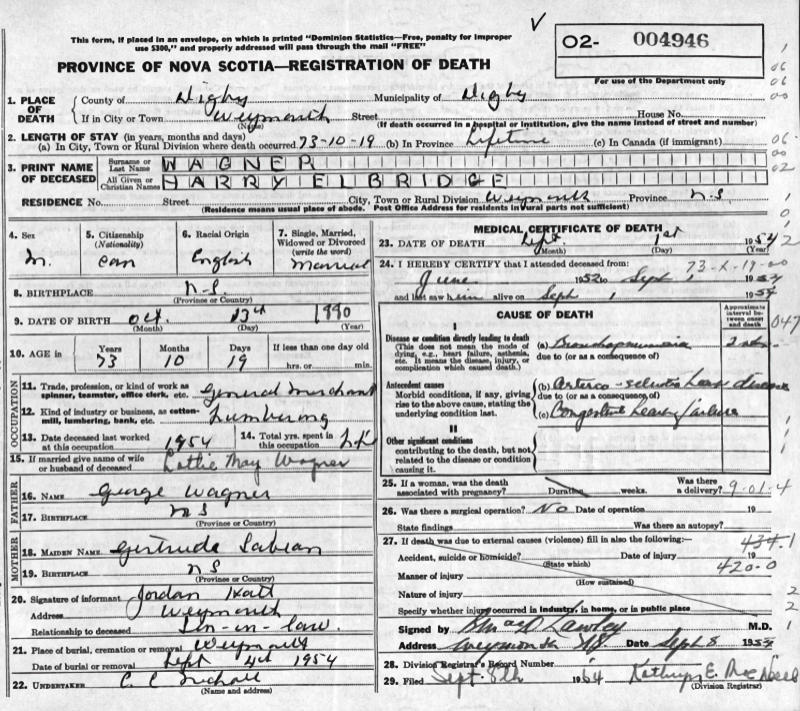 This form, if placed in an envelope, on which is printed "Dominion Statistics—Free, penalty for improper
use $300," and properly addressed will pass through the mail "FREE"
PROVINCE OF NOVA SCOTIA—REGISTRATION OF DEATH
O2- 004946
For use of the Department only
1. PLACE OF DEATH
County of Digby Municipality of Digby
If in City or Town Weymouth Street House No.
(Name) (If death occurred in a hospital or institution, give the name instead of street and number)
2. LENGTH OF STAY (in years, months and days)
(a) In City, Town or Rural Division where death occurred 73-10-19 (b) In Province Lifetime (c) In Canada (if immigrant)
3. PRINT NAME OF DECEASED
Surname or Last Name WAGNER
All Given or Christian Names HARRY ELBRIDGE
RESIDENCE No. Street City, Town or Rural Division Weymouth Province N.S
(Residence means usual place of abode. Post Office Address for residents in rural parts not sufficient)
4. Sex
M.
5. Citizenship (Nationality)
Can
6. Racial Origin
English
7. Single, Married, Widowed or Divorced (write the word)
Married
8. BIRTHPLACE N.S.
(Province or Country)
9. DATE OF BIRTH Oct. 13th 1880
(Month) (Day) (Year)
10. AGE in Years Months Days If less than one day old
73 10 19 hrs. or min.
OCCUPATION
11. Trade, profession, or kind of work as spinner, teamster, office clerk, etc. General Merchant
12. Kind of industry or business, as cotton-mill, lumbering, bank, etc. Lumbering
13. Date deceased last worked at this occupation 1954
14. Total yrs. spent in this occupation
15. If married give name of wife or husband of deceased Lottie May Wagner
FATHER
16. NAME George Wagner
17. BIRTHPLACE N S
(Province or Country)
MOTHER
18. MAIDEN NAME Gertrude Sabean
19. BIRTHPLACE N S
(Province or Country)
20. Signature of informant Jordan
Address Weymouth
Relationship to deceased Son-in-law.
21. Place of burial, cremation or removal Weymouth
Date of burial or removal Sept 4th 1954
22. UNDERTAKER C. C
(Name and address)
MEDICAL CERTIFICATE OF DEATH
23. DATE OF DEATH Sept. 1st 1954
(Month) (Day) (Year)
24. I HEREBY CERTIFY that I attended deceased from:
June 1952 to Sept 1 1954
and last saw him alive on Sept 1 1954
CAUSE OF DEATH
Approximate interval between onset and death
I
Disease or condition directly leading to death
(This does not mean the mode of dying, e.g., heart failure, asthenia, etc. It means the disease, injury, or complication which caused death.)
(a) Bronchopneumonia
due to (or as a consequence of)
Antecedent causes
Morbid conditions, if any, giving rise to the above cause, stating the underlying condition last.
(b) Arterio-sclerotic heart disease
due to (or as a consequence of)
(c) Congestive heart failure
II
Other significant conditions
contributing to the death, but not related to the disease or condition causing it.
25. If a woman, was the death associated with pregnancy? Duration weeks. Was there a delivery? 9-01-4
26. Was there a surgical operation? No Date of operation 19
State findings Was there an autopsy?
27. If death was due to external causes (violence) fill in also the following:— 434.1
Accident, suicide or homicide? Date of injury 19
(State which) 420-0
Manner of injury
(How sustained)
Nature of injury
Specify whether injury occurred in industry, in home, or in public place
Signed by M.D.
Address Weymouth NS. Date Sept 8 1954
28. Division Registrar's Record Number
29. Filed Sept. 8th 1954 Kathryn E.
(Division Registrar)